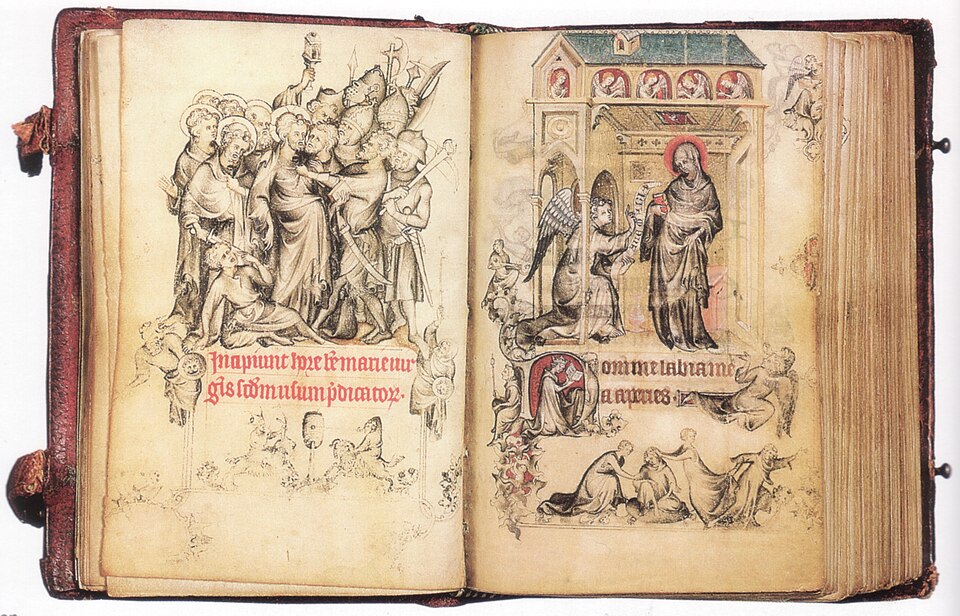 Incipiunt hore bẽ marie uir
gis scđm usum p̃dicatoꝝ.
Domine labia me
a aperies.